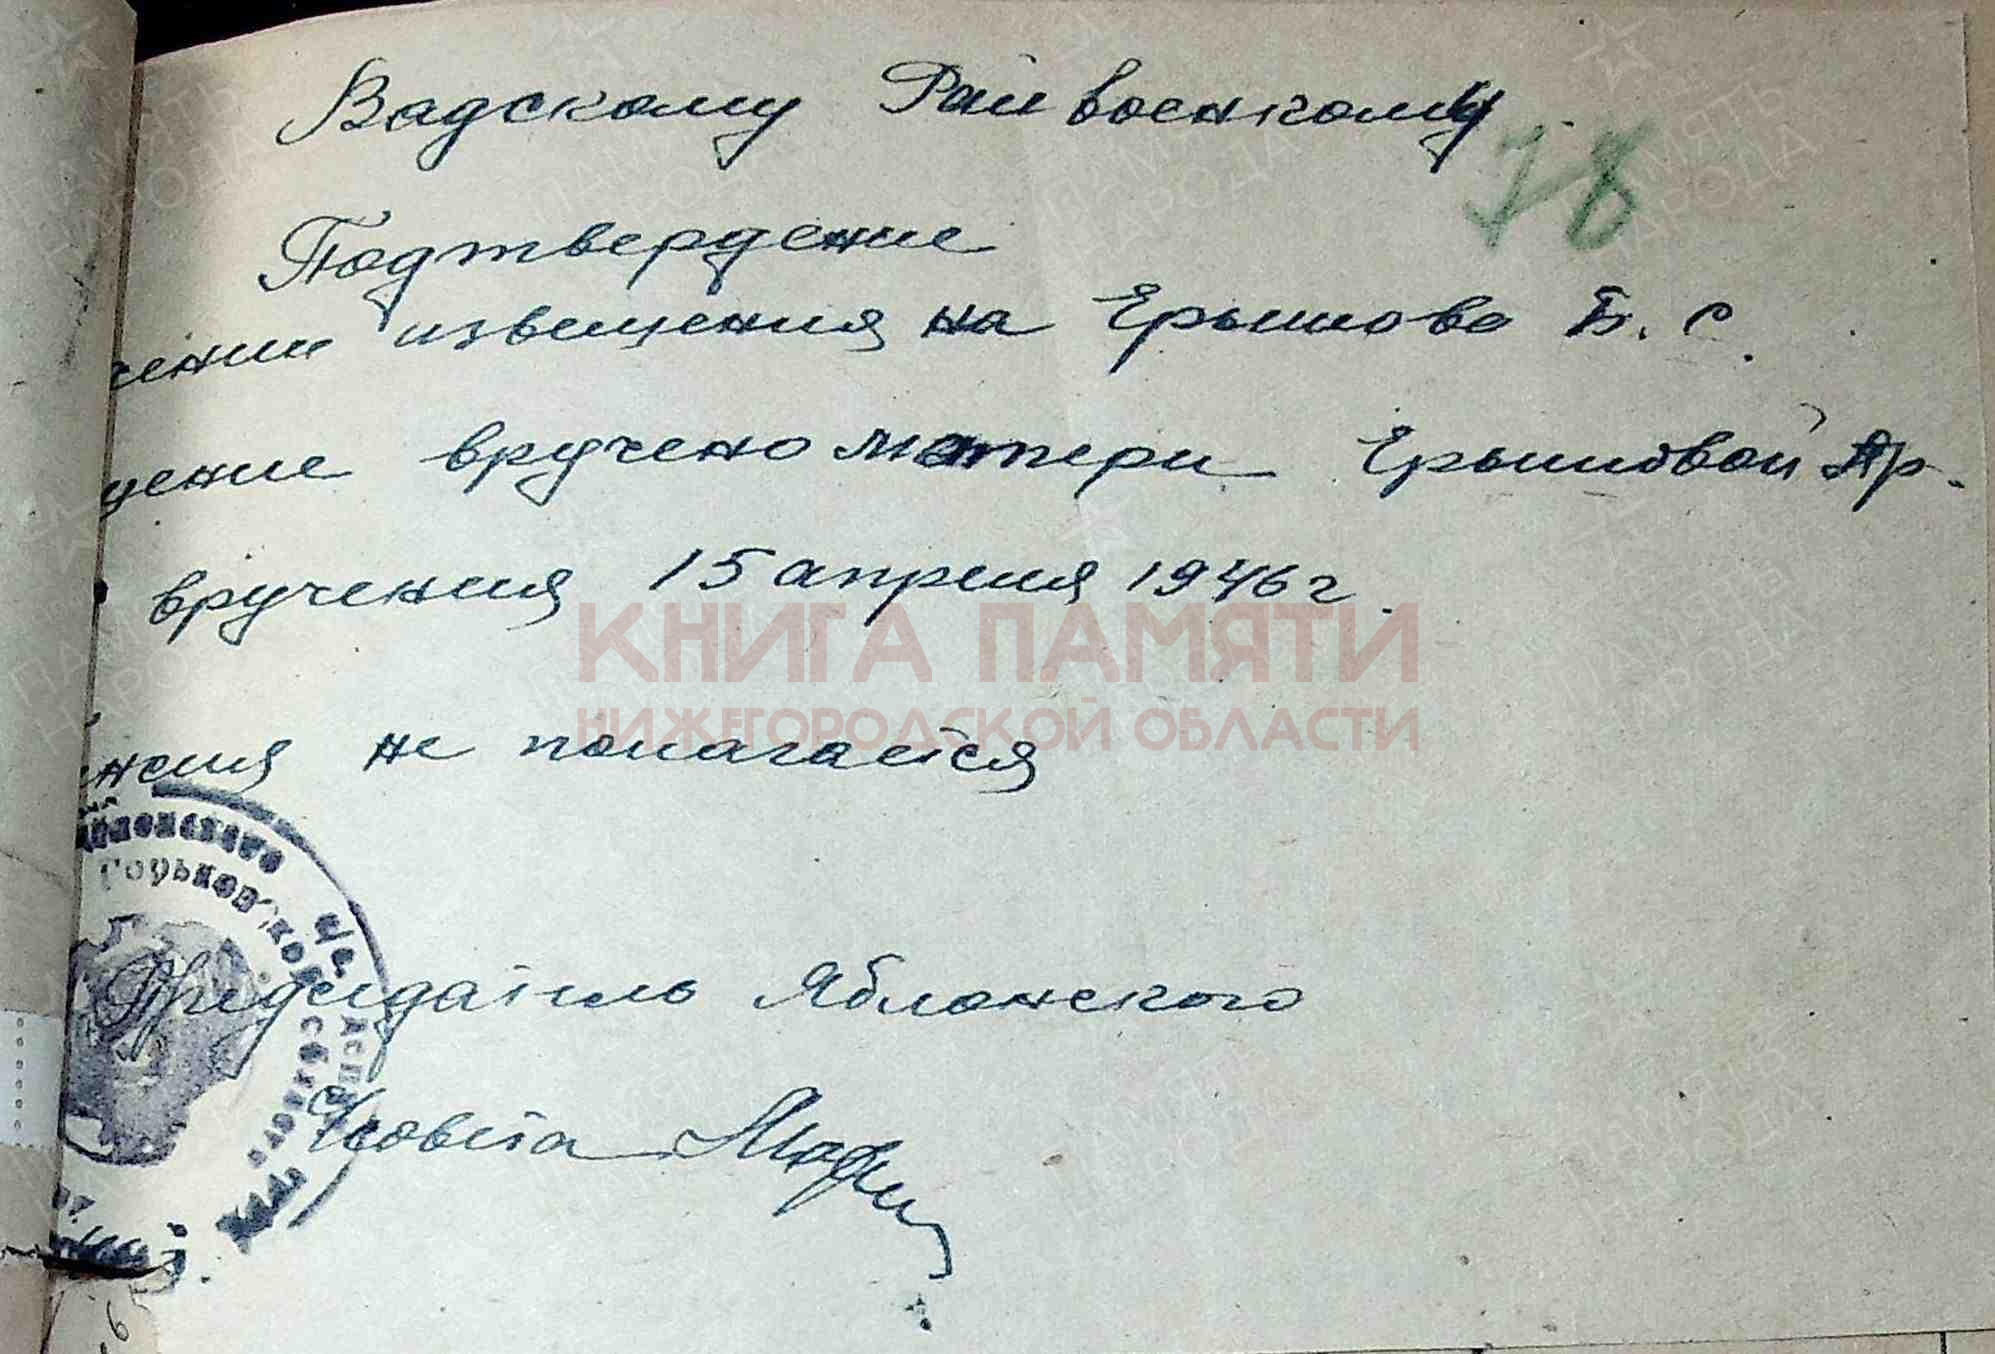 Вадскому Райвоенкому
78
Подтвердение
чении извещения на Ершиова Б. С.
щение вручено матери Ершиовой Пр.
вручения 15 апреля 1946 г.
КНИГА ПАМЯТИ
НИЖЕГОРОДСКОЙ ОБЛАСТИ
енсия не полагается
Председатель Яблонского
с/совета
Горьковской области